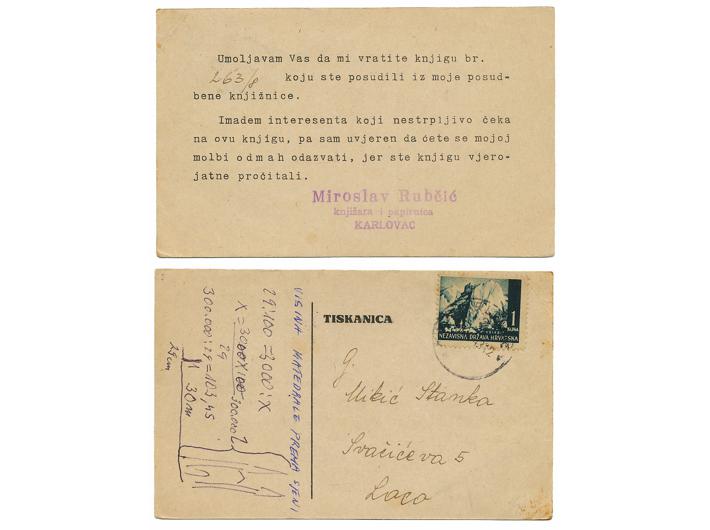 Umoljavam Vas da mi vratite knjigu br.
263/8 koju ste posudili iz moje posud-
bene knjižnice.
Imadem interesenta koji nestrpljivo čeka
na ovu knjigu, pa sam uvjeren da ćete se mojoj
molbi odmah odazvati, jer ste knjigu vjero-
jatne pročitali.
Miroslav Rubčić
knjižara i papirnica
KARLOVAC
TISKANICA
1
KUNA
NEZAVISNA DRŽAVA HRVATSKA
G.
Mikić Stanka
Svačićeva 5
Loco
VISINA KATEDRALE PREMA SJENI
29:100=3000:X
X=3000X100
300.000
29
300.000:29=103,45
30m
29cm